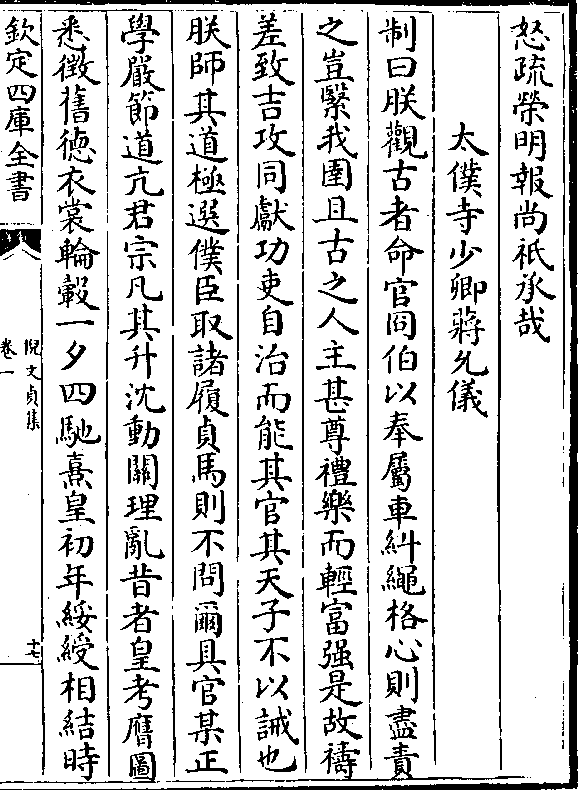 怒疏榮明報尚祇承哉
太僕寺少卿蔣允儀
制曰朕觀古者命官冏伯以奉屬車糾繩格心則盡責
之豈繄我圉且古之人主甚尊禮樂而輕富强是故禱
差致吉攻同獻功吏自治而能其官其天子不以誡也
朕師其道極選僕臣取諸履貞馬則不問爾具官某正
學嚴節道亢君宗凡其升沈動關理亂昔者皇考膺圖
悉徵舊徳衣裳輪轂一夕四馳熹皇初年綏綬相結時
欽定四庫全書
倪文貞集
卷一
十七